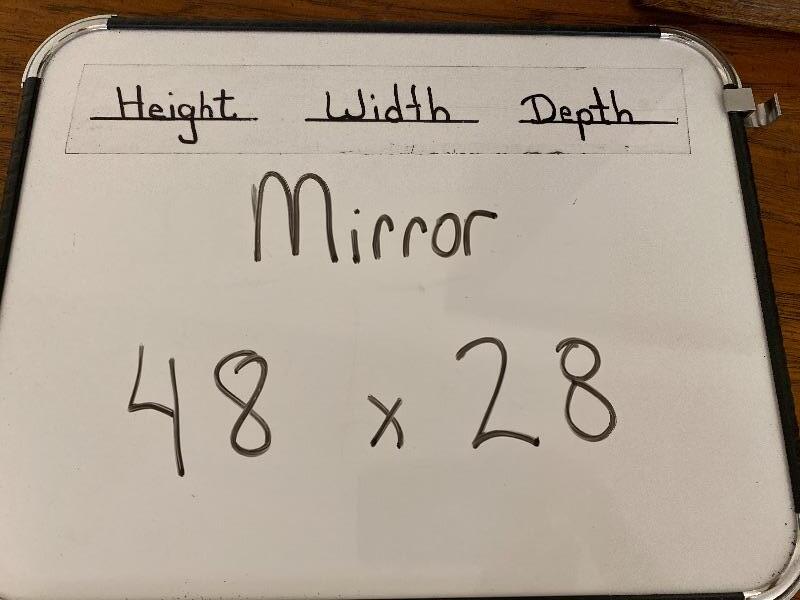 Height Width Depth
Mirror
48 x 28